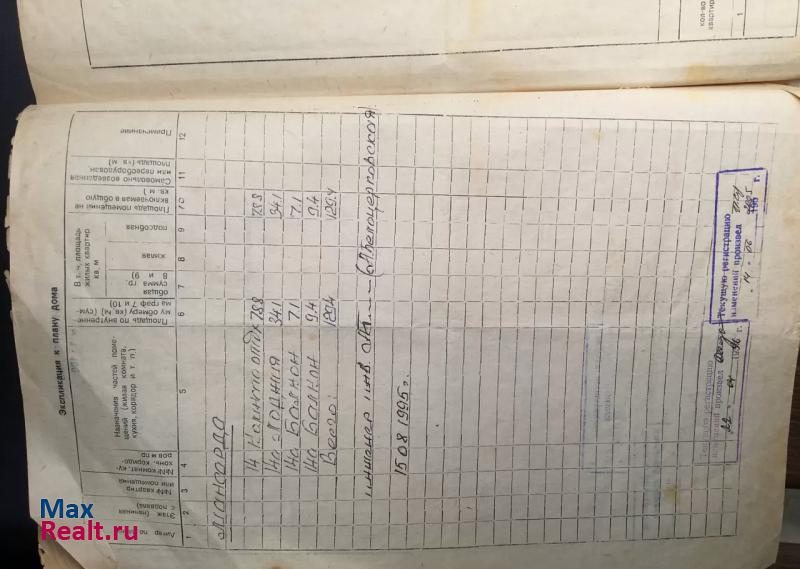 кол-во
квартир
1
Экспликация к плану дома
Литер по
Этаж (начиная
с подвала)
№№ квартир
или помещения
№№ комнат, ку-
хонь, коридо-
ров и пр
Назначения частей поме-
щений (жилая комната,
кухня, коридор и т. п.)
Площадь по внутренне-
му обмеру (кв. м) (сум-
ма граф 7 и 10)
В т. ч. площадь
жилых квартир
кв. м
общая
сумма гр.
8 и 9)
жилая
подсобная
Площадь помещений не
включаемая в общую
кв. м )
Самовольно возведенная
или переоборудован.
площадь (кв м)
Примечание
1 2 3 4 5 6 7 8 9 10 11 12
Мансарда
14 78.8 78.8
14а Лоджия 34.1 34.1
14б Балкон 7.1 7.1
Балкон 9.4 9.4
Всего: 129.4 129.4
инженер инв.
15.08.1995г.
Текущую регистрацию
изменений произвел
22 1996 г.
Текущую регистрацию
изменений произвел
14 06 2005 г.
Max
Realt.ru